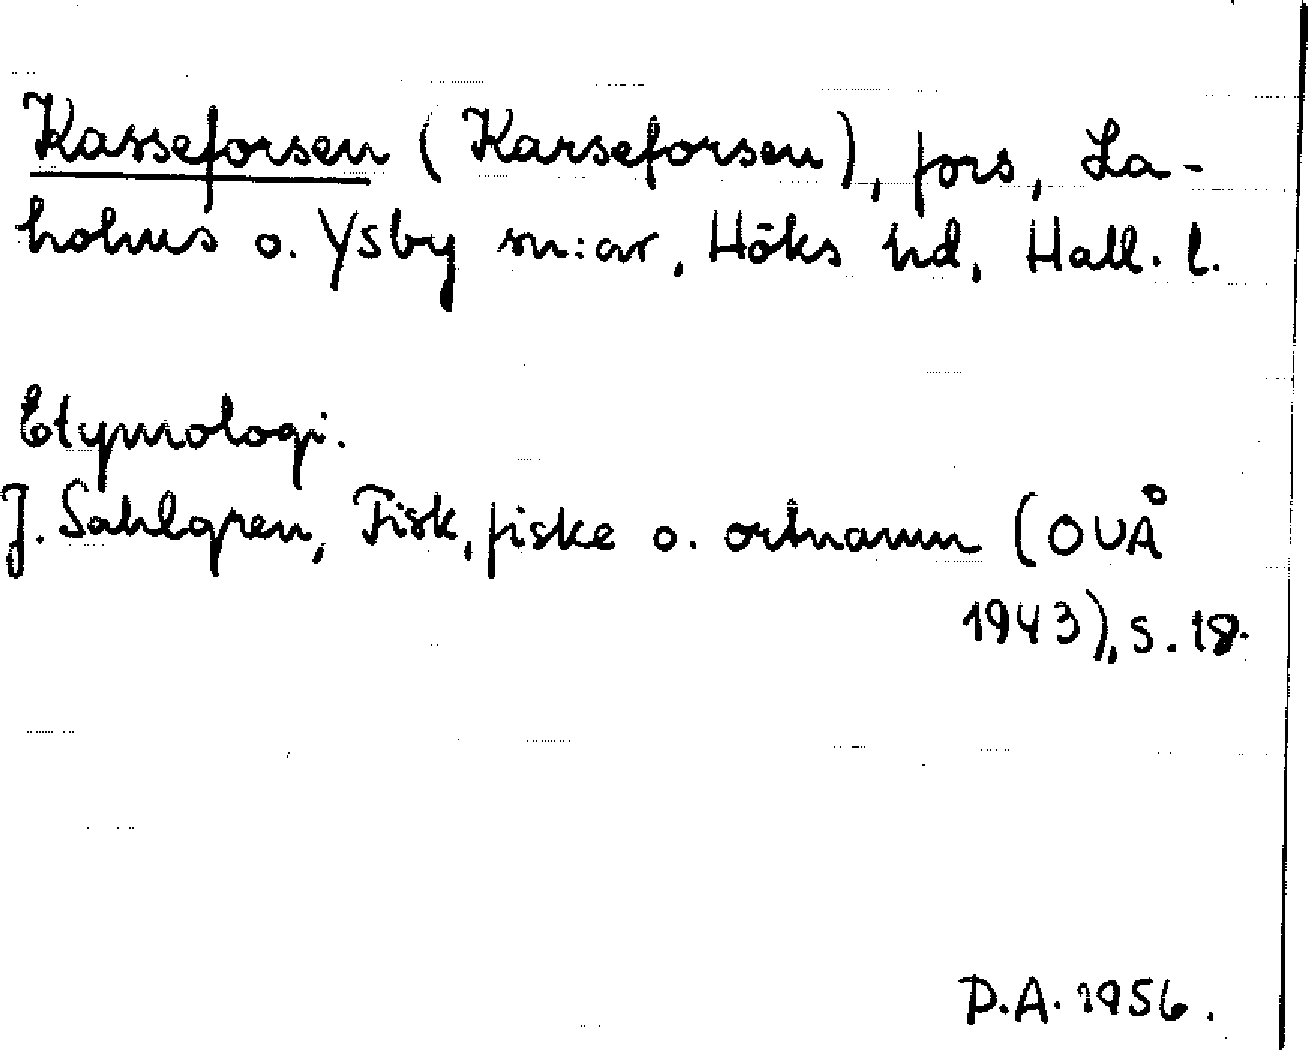 Kasseforsen (Karseforsen), fors, La-
holms o. Ysby sn:ar, Höks hd, Hall. l.
Etymologi.
J. Sahlgren, Fisk, fiske o. ortnamn (OUÅ
1943), s. 18.
D.A. 1956.